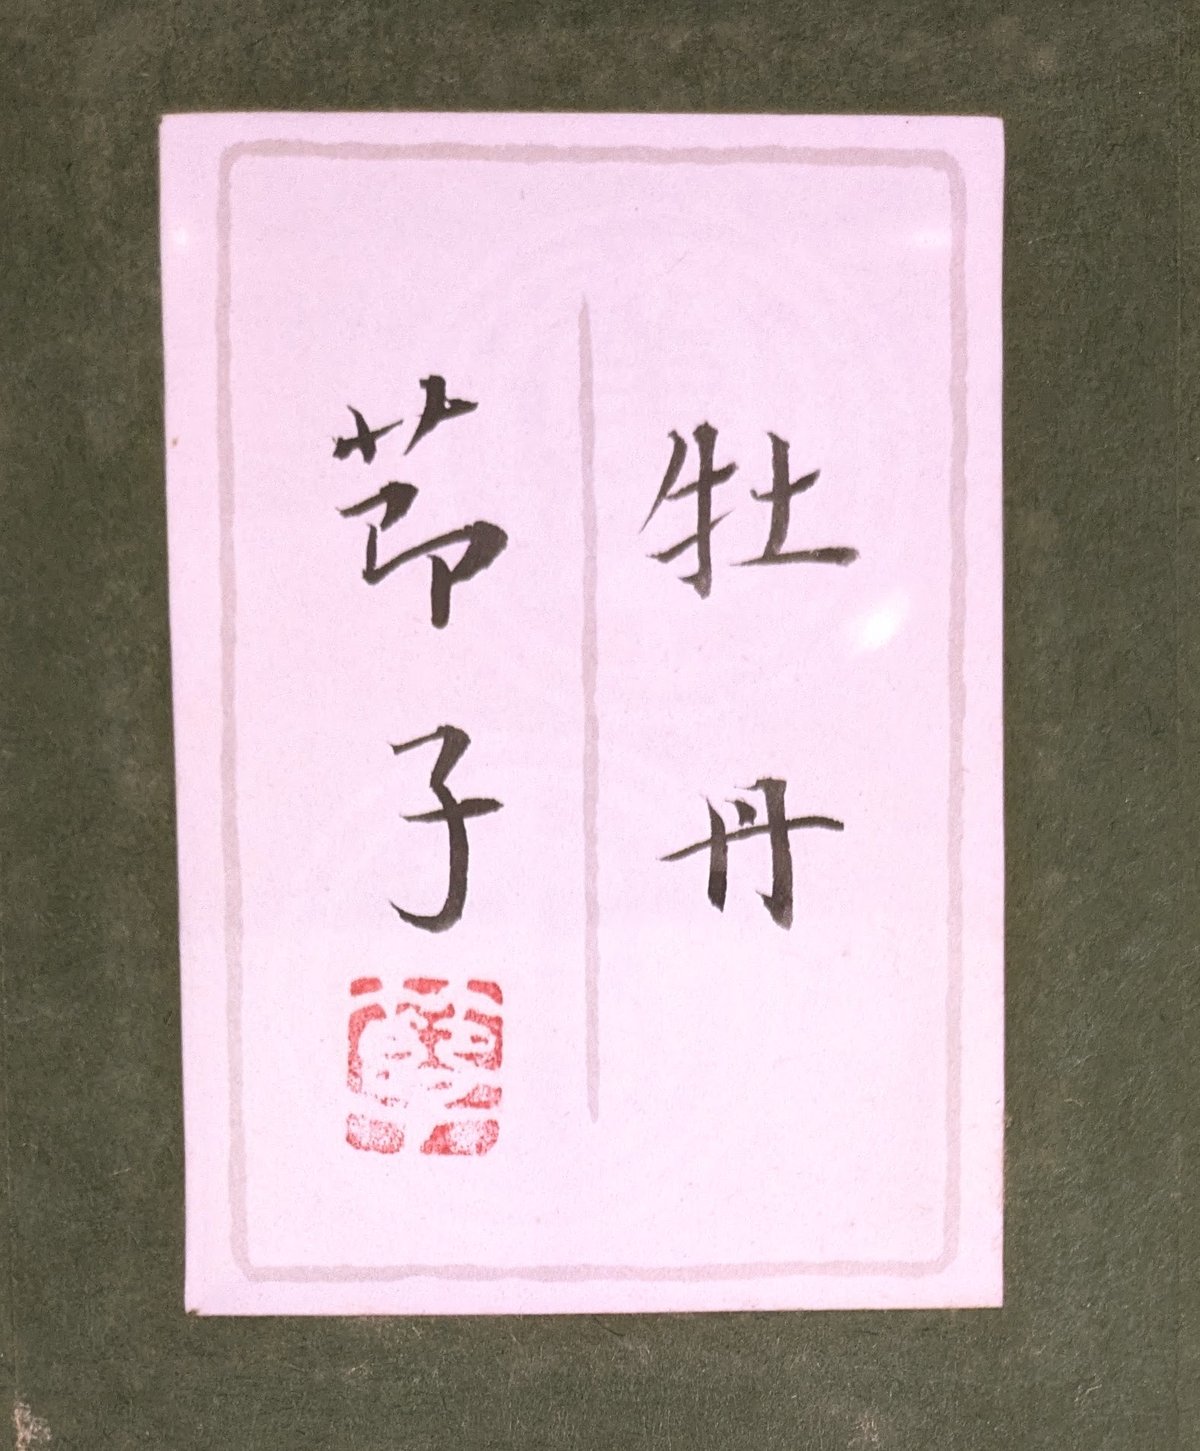 牡丹
節子